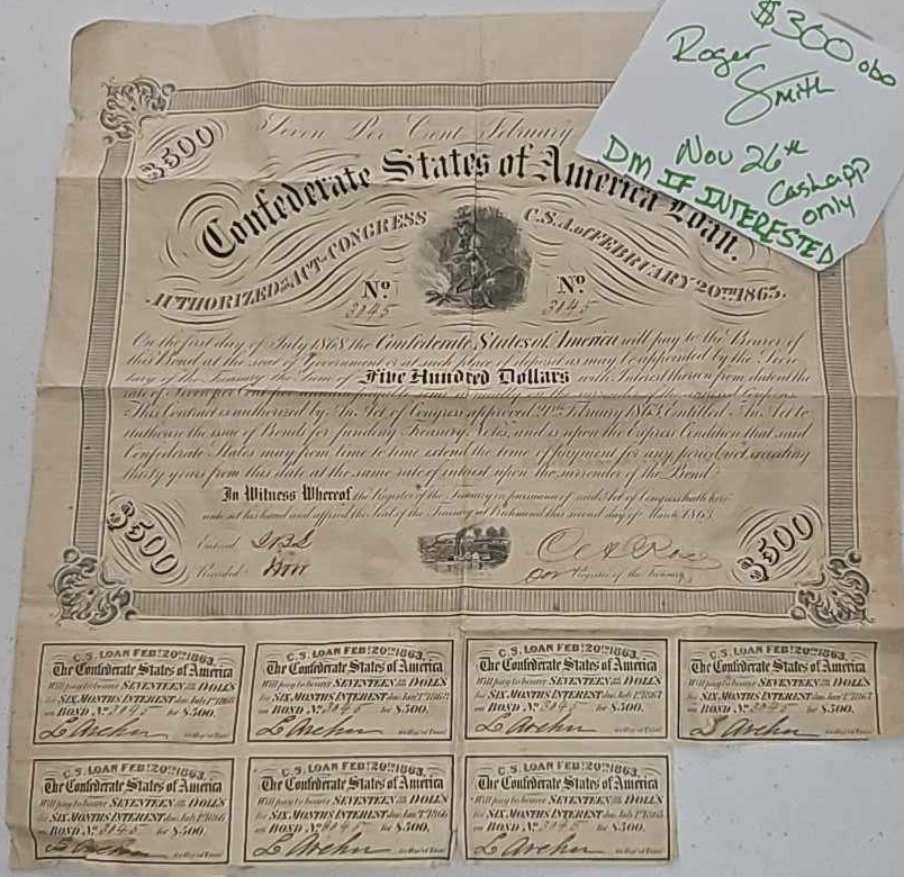 $300 obo
Roger
Smith
Nov 26th
Cashapp
only
DM IF INTERESTED
$500
Seven Per Cent February
Confederate States of America Loan.
AUTHORIZED BY ACT OF CONGRESS C.S.A. of FEBRUARY 20TH 1863.
No No
3045 3045
On the first day of July 1868 the Confederate States of America will pay to the Bearer of
this Bond at the seat of Government or at such place of deposit as may be appointed by the Secre
tary of the Treasury the Sum of Five Hundred Dollars with Interest thereon from date at the
rate of Seven per Cent per annum payable semi annually on the surrender of the annexed Coupons
This Contract is authorized by An Act of Congress approved 20th February 1863 Entitled An Act to
authorize the issue of Bonds for funding Treasury Notes, and is upon the Express Condition that said
Confederate States may from time to time extend the time of payment for any period not exceeding
thirty years from this date at the same rate of interest upon the surrender of the Bond
In Witness Whereof the Register of the Treasury in pursuance of said Act of Congress hath here
unto set his hand and affixed the Seal of the Treasury at Richmond this second day of March 1863
$500 $500
Entered
Recorded
Register of the Treasury
C.S. LOAN FEB: 20TH 1863.
The Confederate States of America
Will pay to bearer SEVENTEEN 50/100 DOLL'S
for SIX MONTHS INTEREST due July 1st 1868
on BOND No 3045 for $500.
C.S. LOAN FEB: 20TH 1863.
The Confederate States of America
Will pay to bearer SEVENTEEN 50/100 DOLL'S
for SIX MONTHS INTEREST due Jany 1st 1868
on BOND No 3045 for $500.
C.S. LOAN FEB: 20TH 1863.
The Confederate States of America
Will pay to bearer SEVENTEEN 50/100 DOLL'S
for SIX MONTHS INTEREST due July 1st 1867
on BOND No 3045 for $500.
C.S. LOAN FEB: 20TH 1863.
The Confederate States of America
Will pay to bearer SEVENTEEN 50/100 DOLL'S
for SIX MONTHS INTEREST due Jany 1st 1867
on BOND No 3045 for $500.
C.S. LOAN FEB: 20TH 1863.
The Confederate States of America
Will pay to bearer SEVENTEEN 50/100 DOLL'S
for SIX MONTHS INTEREST due July 1st 1866
on BOND No 3045 for $500.
C.S. LOAN FEB: 20TH 1863.
The Confederate States of America
Will pay to bearer SEVENTEEN 50/100 DOLL'S
for SIX MONTHS INTEREST due Jany 1st 1866
on BOND No 3045 for $500.
C.S. LOAN FEB: 20TH 1863.
The Confederate States of America
Will pay to bearer SEVENTEEN 50/100 DOLL'S
for SIX MONTHS INTEREST due July 1st 1865
on BOND No 3045 for $500.